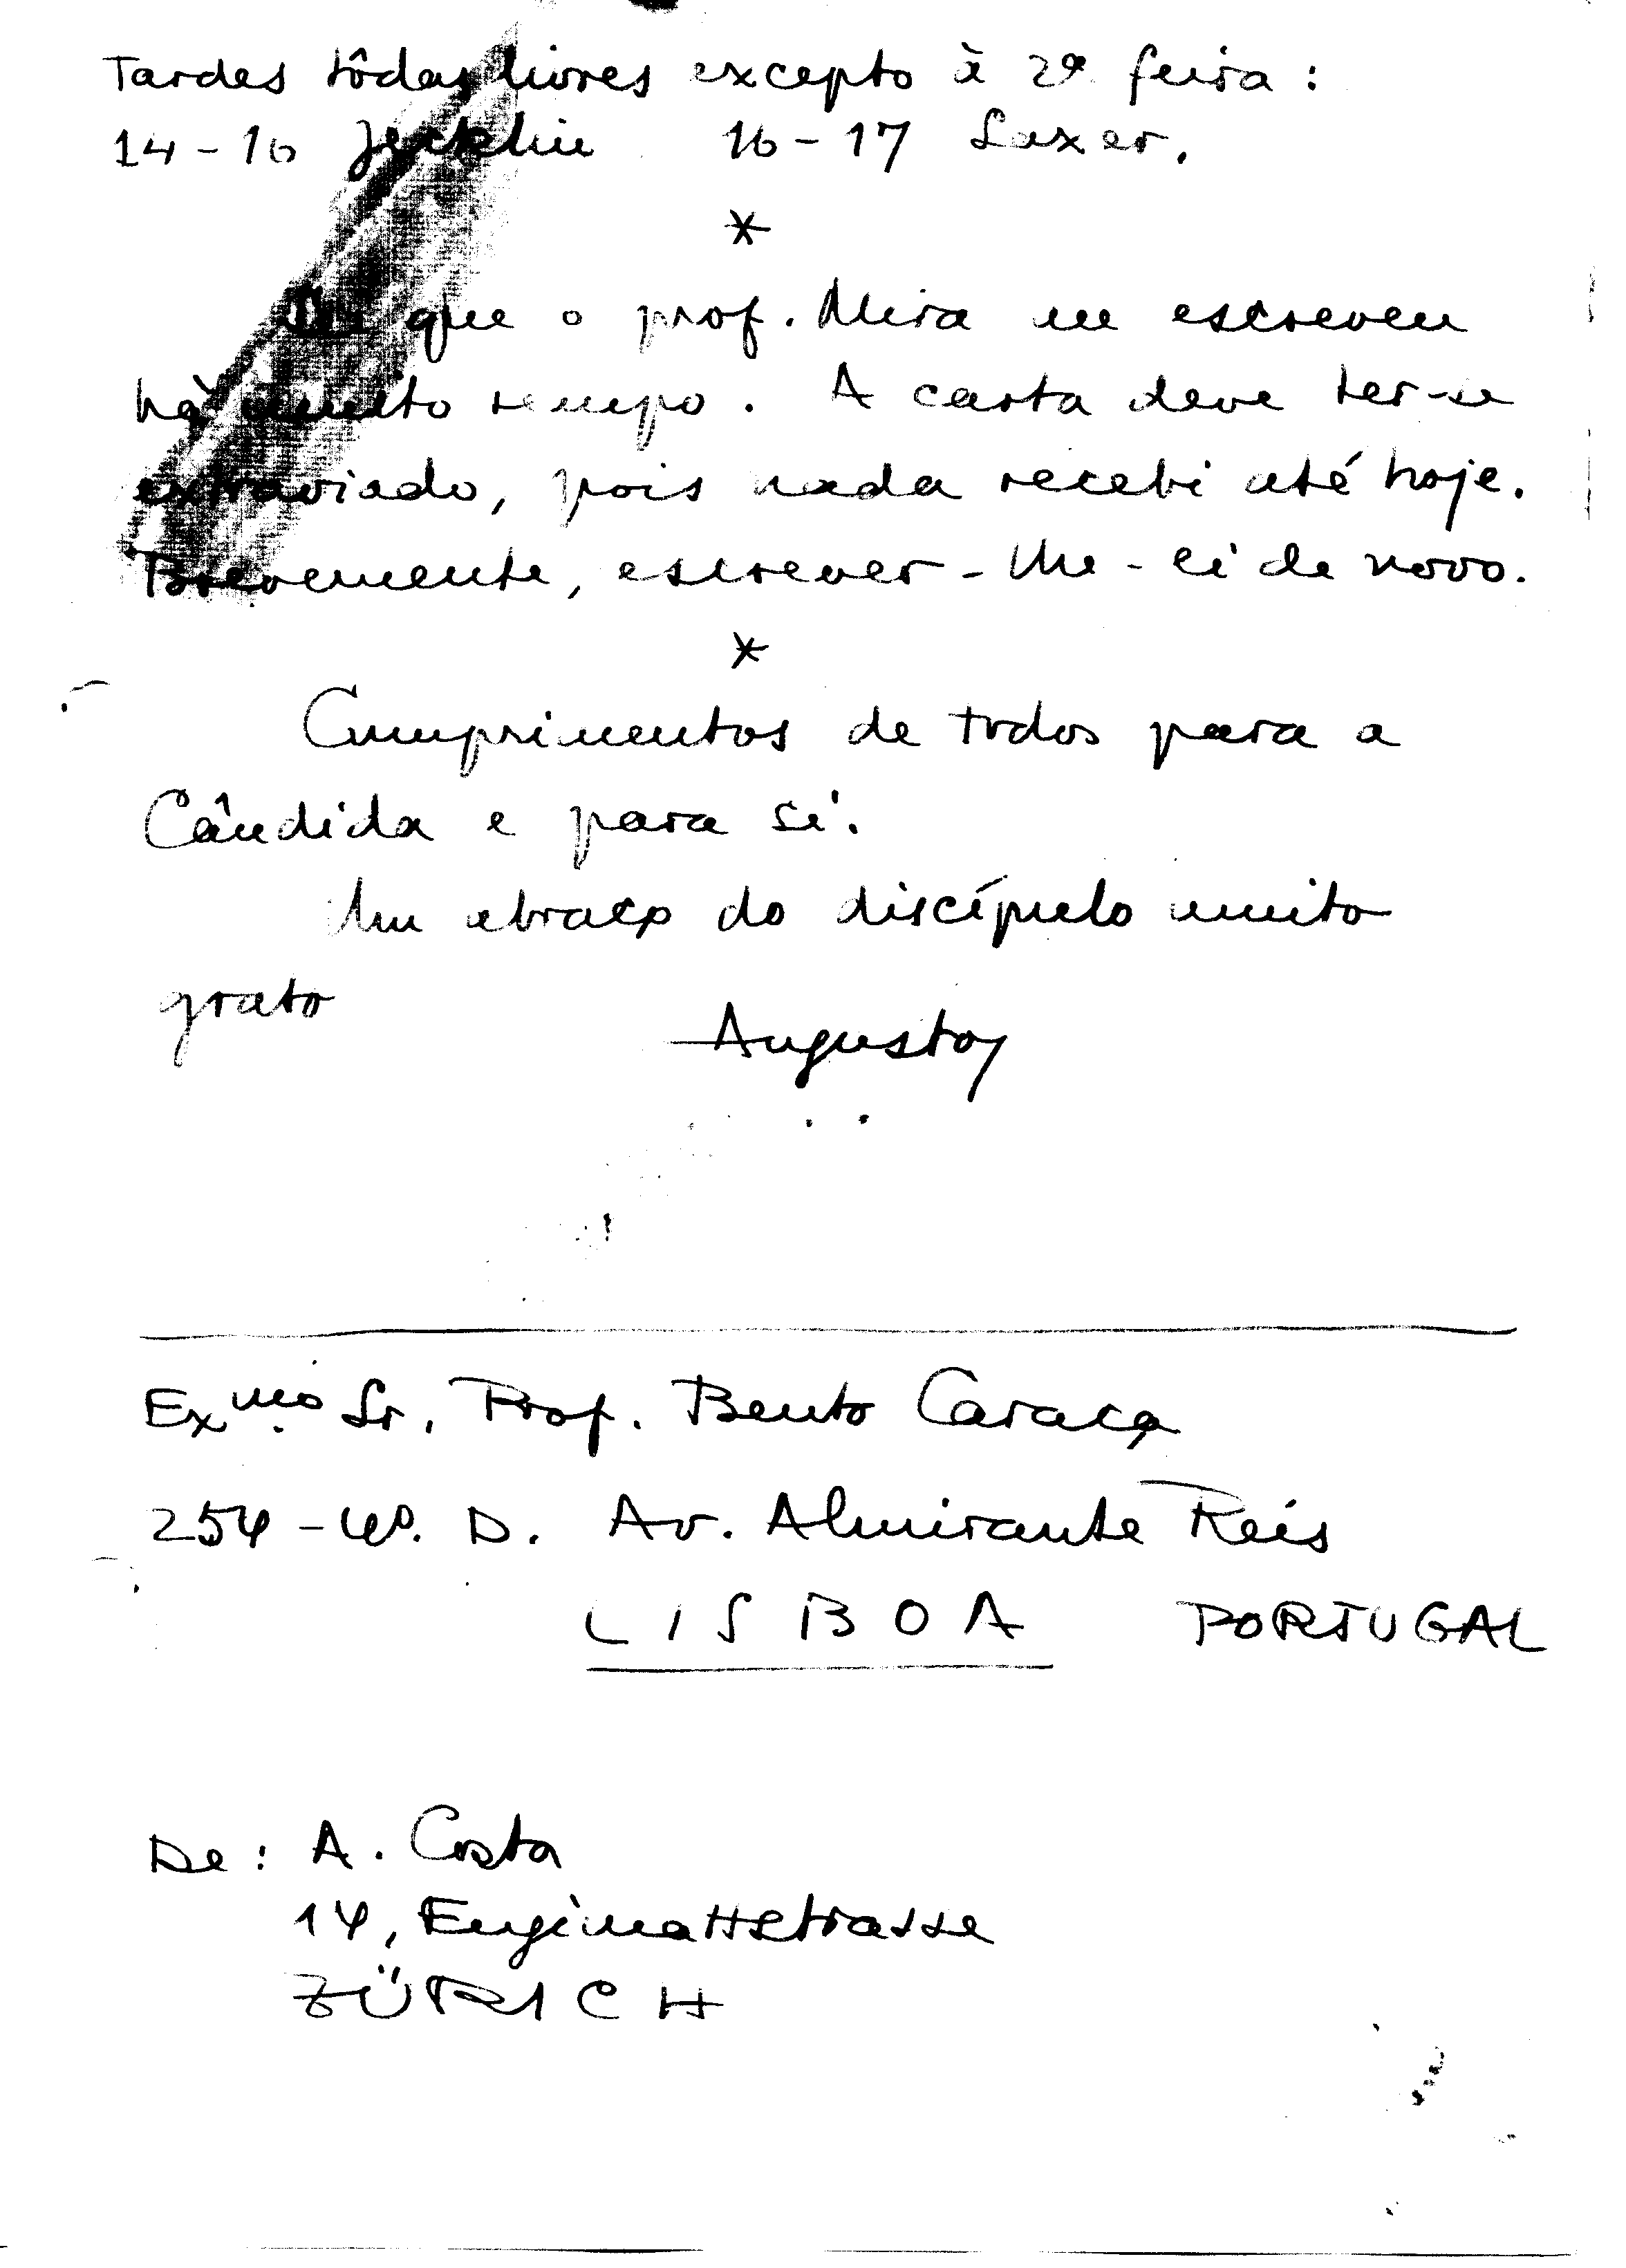 Tardes tôdas livres excepto à 2ª feira:
14-16 Jecklin 16-17 Saxer.
*
que o prof. Mira me escreveu
há muito tempo. A carta deve ter-se
extraviado, pois nada recebi até hoje.
Brevemente, escrever-lhe-ei de novo.
*
Cumprimentos de todos para a
Cândida e para si.
Um abraço do discípulo muito
grato
Augusto
Exmo. Sr. Prof. Bento Caraça
254-4º. D. Av. Almirante Reis
LISBOA PORTUGAL
De: A. Costa
14, Engimattstrasse
ZÜRICH